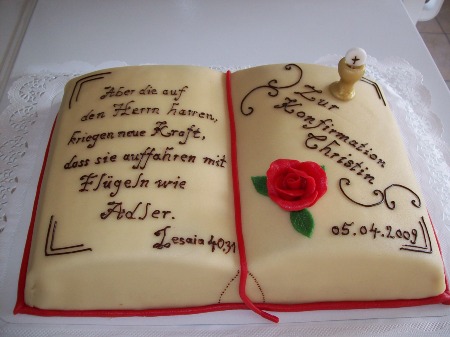 Aber die auf
den Herrn harren,
kriegen neue Kraft,
dass sie auffahren mit
Flügeln wie
Adler.
Jesaia 40,31
Zur
Konfirmation
Christin
05.04.2009